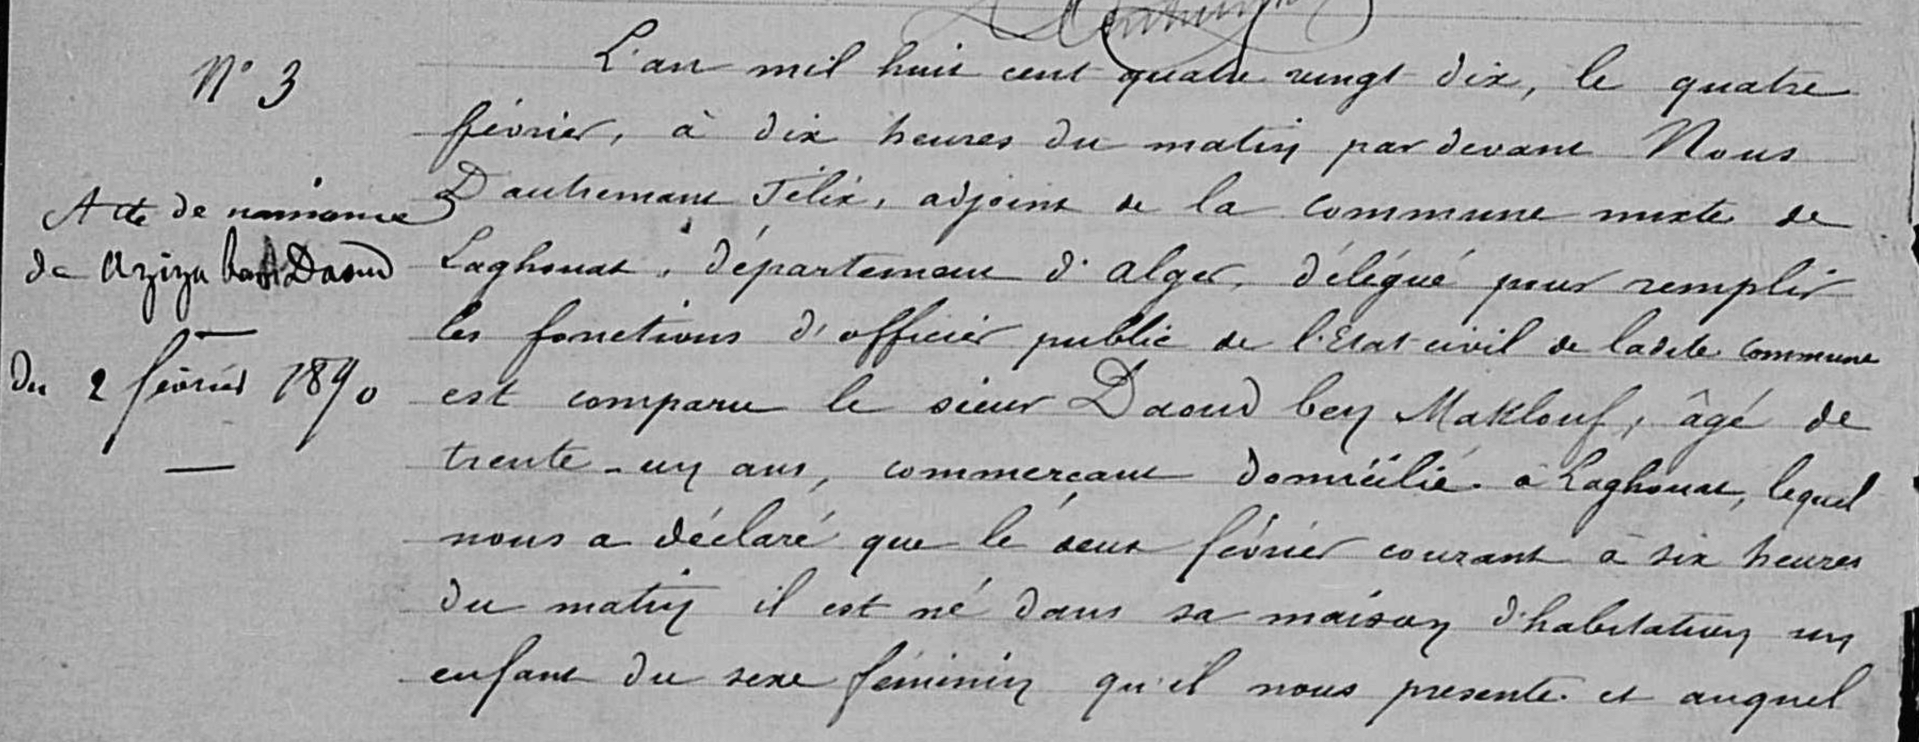 N° 3
Acte de naissance
de Aziza Daoud
Du 2 février 1890
L'an mil huit cent quatre vingt dix, le quatre
février, à dix heures du matin par devant Nous
Dautremant Félix, adjoint de la commune mixte de
Laghouat, département d'Alger, délégué pour remplir
les fonctions d'officier public de l'Etat-civil de ladite commune
est comparu le sieur Daoud ben Maklouf, âgé de
trente-un ans, commercant domicilié à Laghouat, lequel
nous a déclaré que le deux février courant à six heures
du matin il est né dans sa maison d'habitation un
enfant du sexe féminin qu'il nous presente et auquel